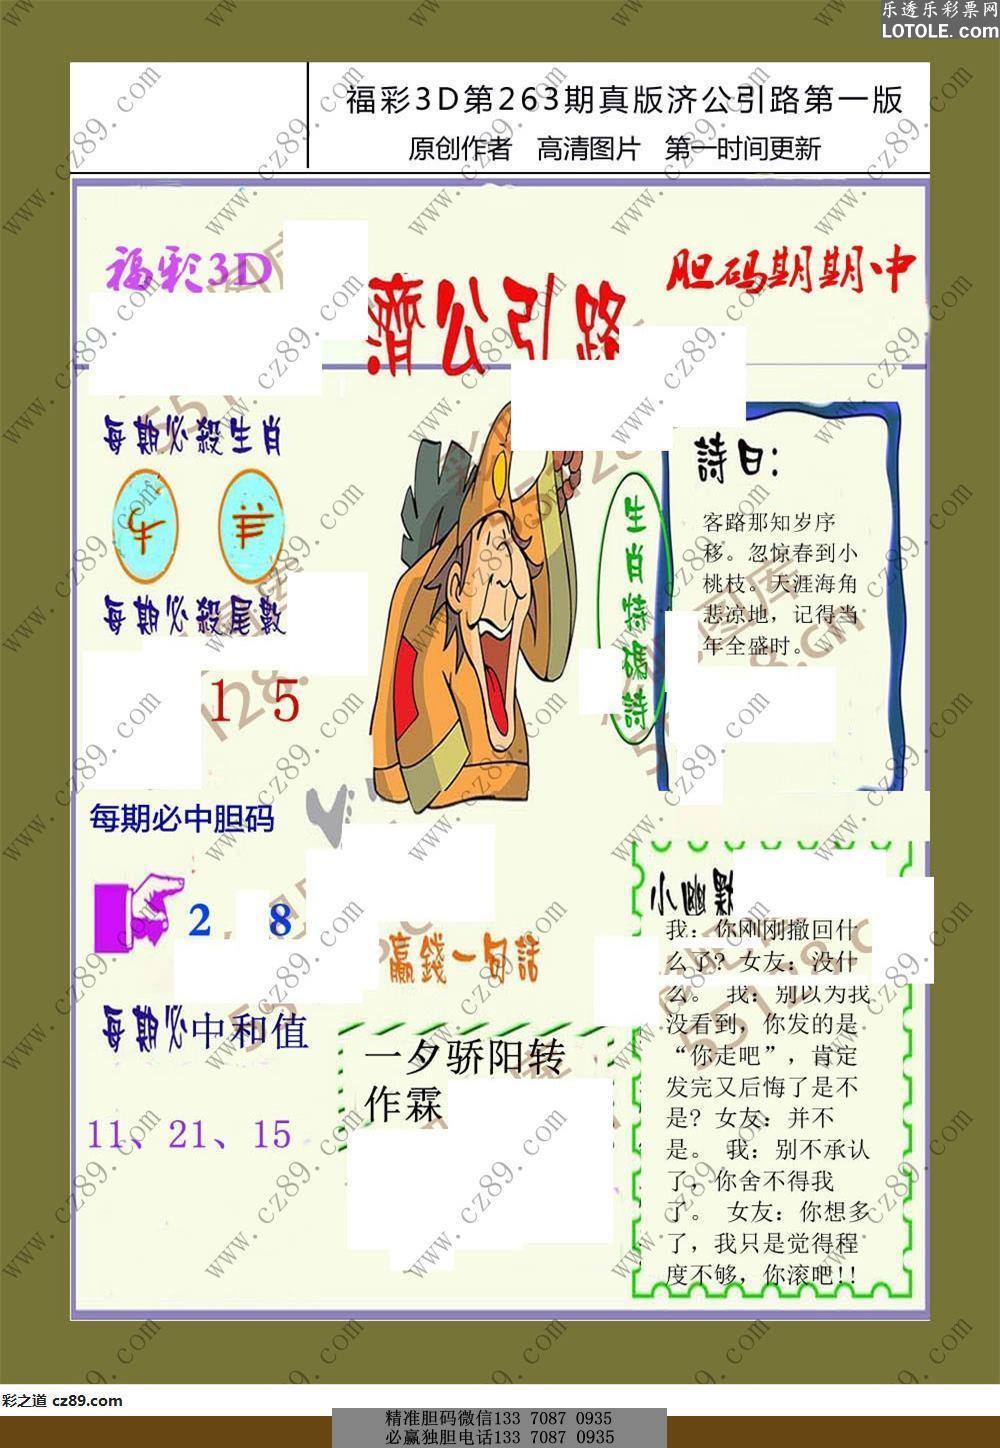 乐透乐彩票网
LOTOLE.com
福彩3D第263期真版济公引路第一版
原创作者 高清图片 第一时间更新
福彩3D
濟公引路
胆码期期中
每期必殺生肖
牛 羊
每期必殺尾數
1 5
每期必中胆码
2 8
每期必中和值
11、21、15
生肖特碼詩
詩曰:
客路那知岁序
移。忽惊春到小
桃枝。天涯海角
悲凉地，记得当
年全盛时。
赢錢一句話
一夕骄阳转
作霖
小幽默
我：你刚刚撤回什
么了? 女友：没什
么。 我：别以为我
没看到，你发的是
“你走吧”，肯定
发完又后悔了是不
是? 女友：并不
是。 我：别不承认
了，你舍不得我
了。 女友：你想多
了，我只是觉得程
度不够，你滚吧!!
www.cz89.com
彩之道 cz89.com
精准胆码微信133 7087 0935
必赢独胆电话133 7087 0935